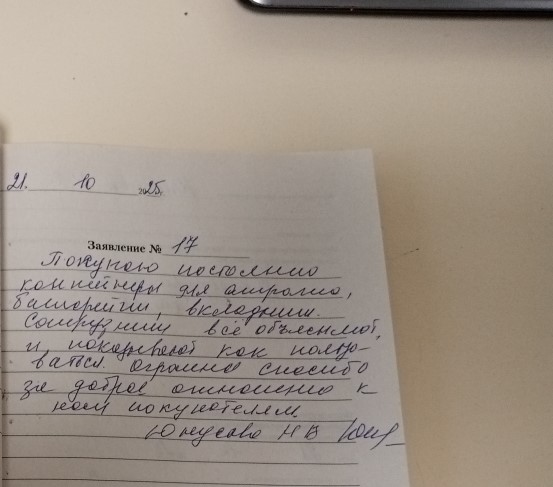 21. 10 2025г.
Заявление № 17
Покупаю постоянно
контейнеры для
батарейки, вкладыши.
Сотрудники всё объясняют,
и показывают как пользо-
ваться. огромно спасибо
за доброе отношение к
нам покупателям
Юнусова Н В